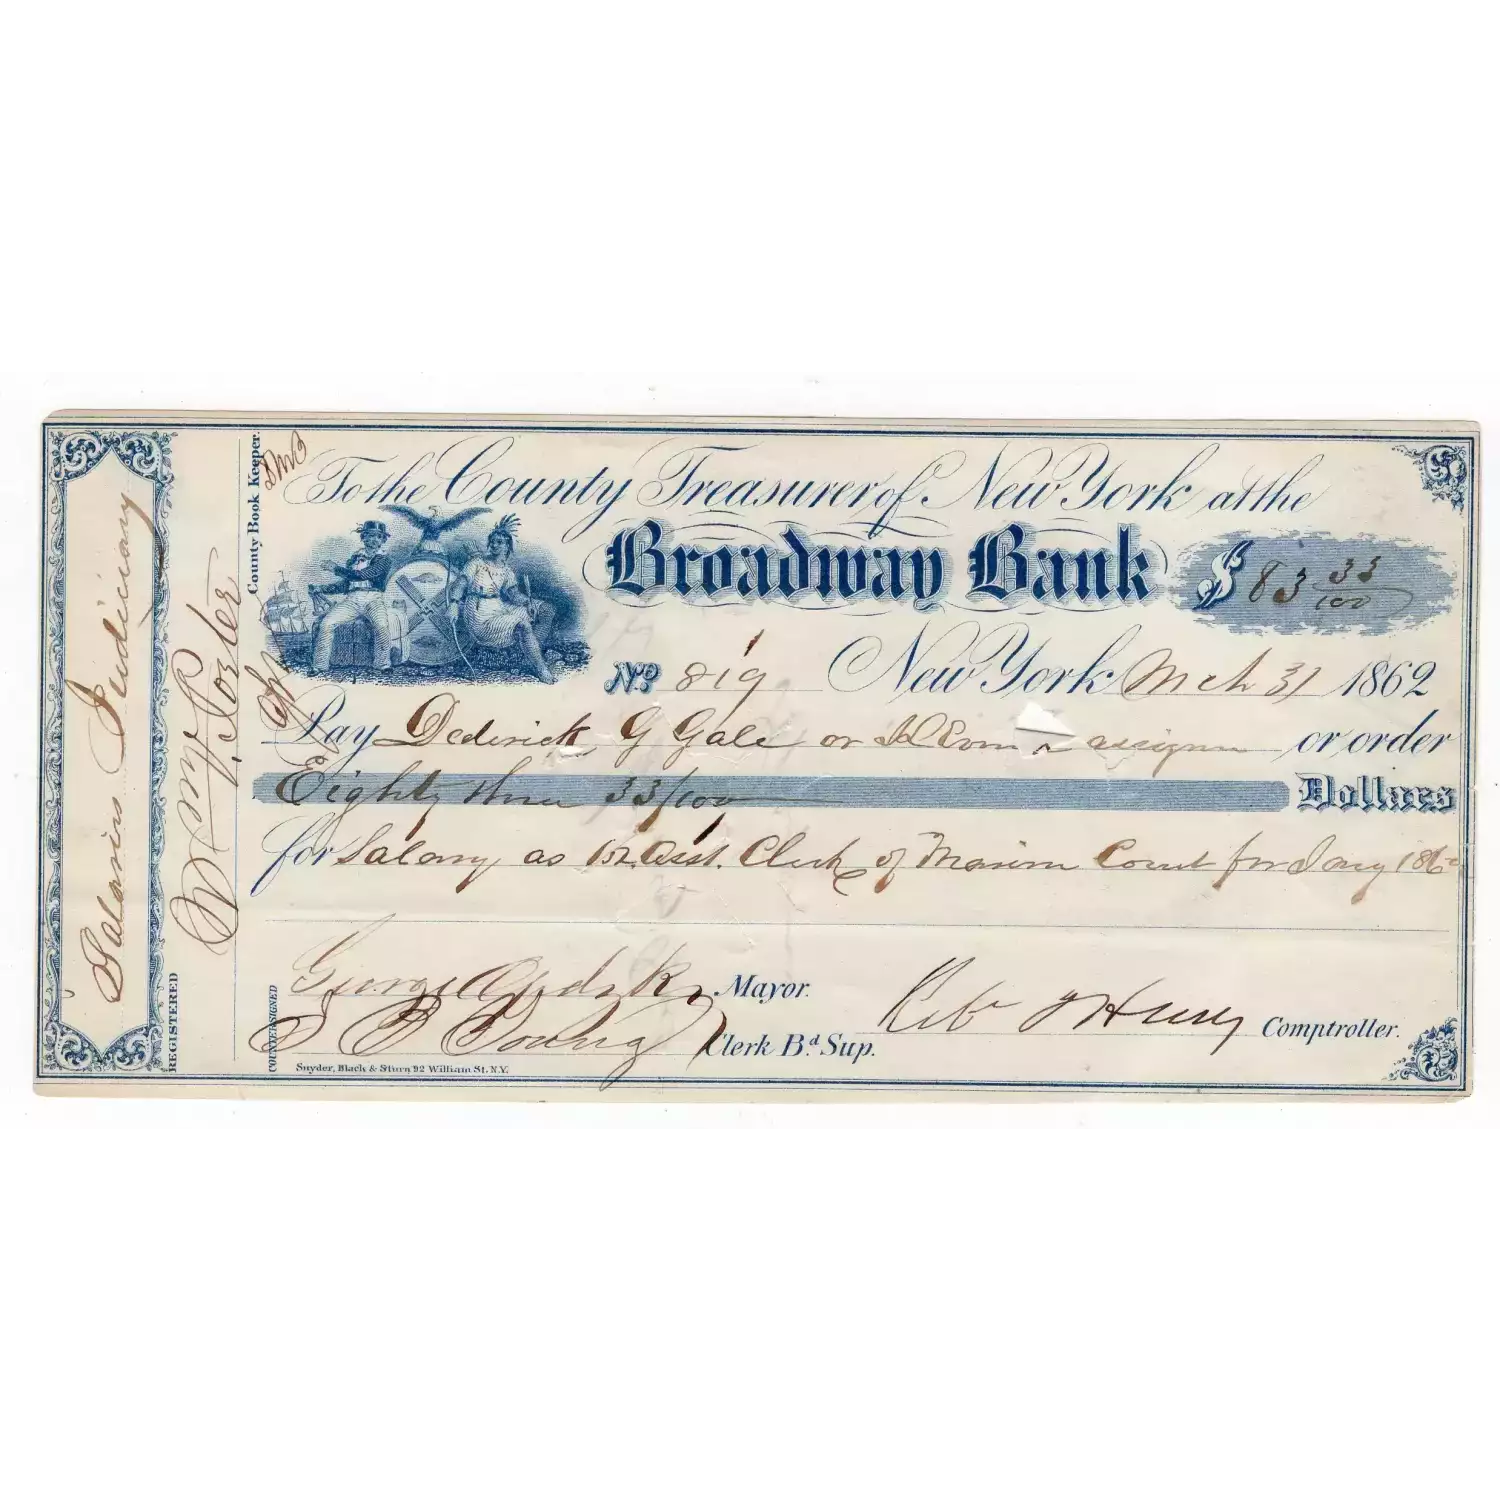 Salaries Judiciary
REGISTERED
County Book Keeper.
To the County Treasurer of New York at the
Broadway Bank
$ 83 33/100
No. 819 New York Mch 31 1862
Pay Dederick G Gale or assigns or order
Eighty three 33/100 Dollars
for Salary as 1st Asst. Clerk of Marine Court for Jany 1862
COUNTERSIGNED
George Opdyke Mayor.
Clerk Bd. Sup.
Comptroller.
Snyder, Black & Sturn 92 William St. N.Y.